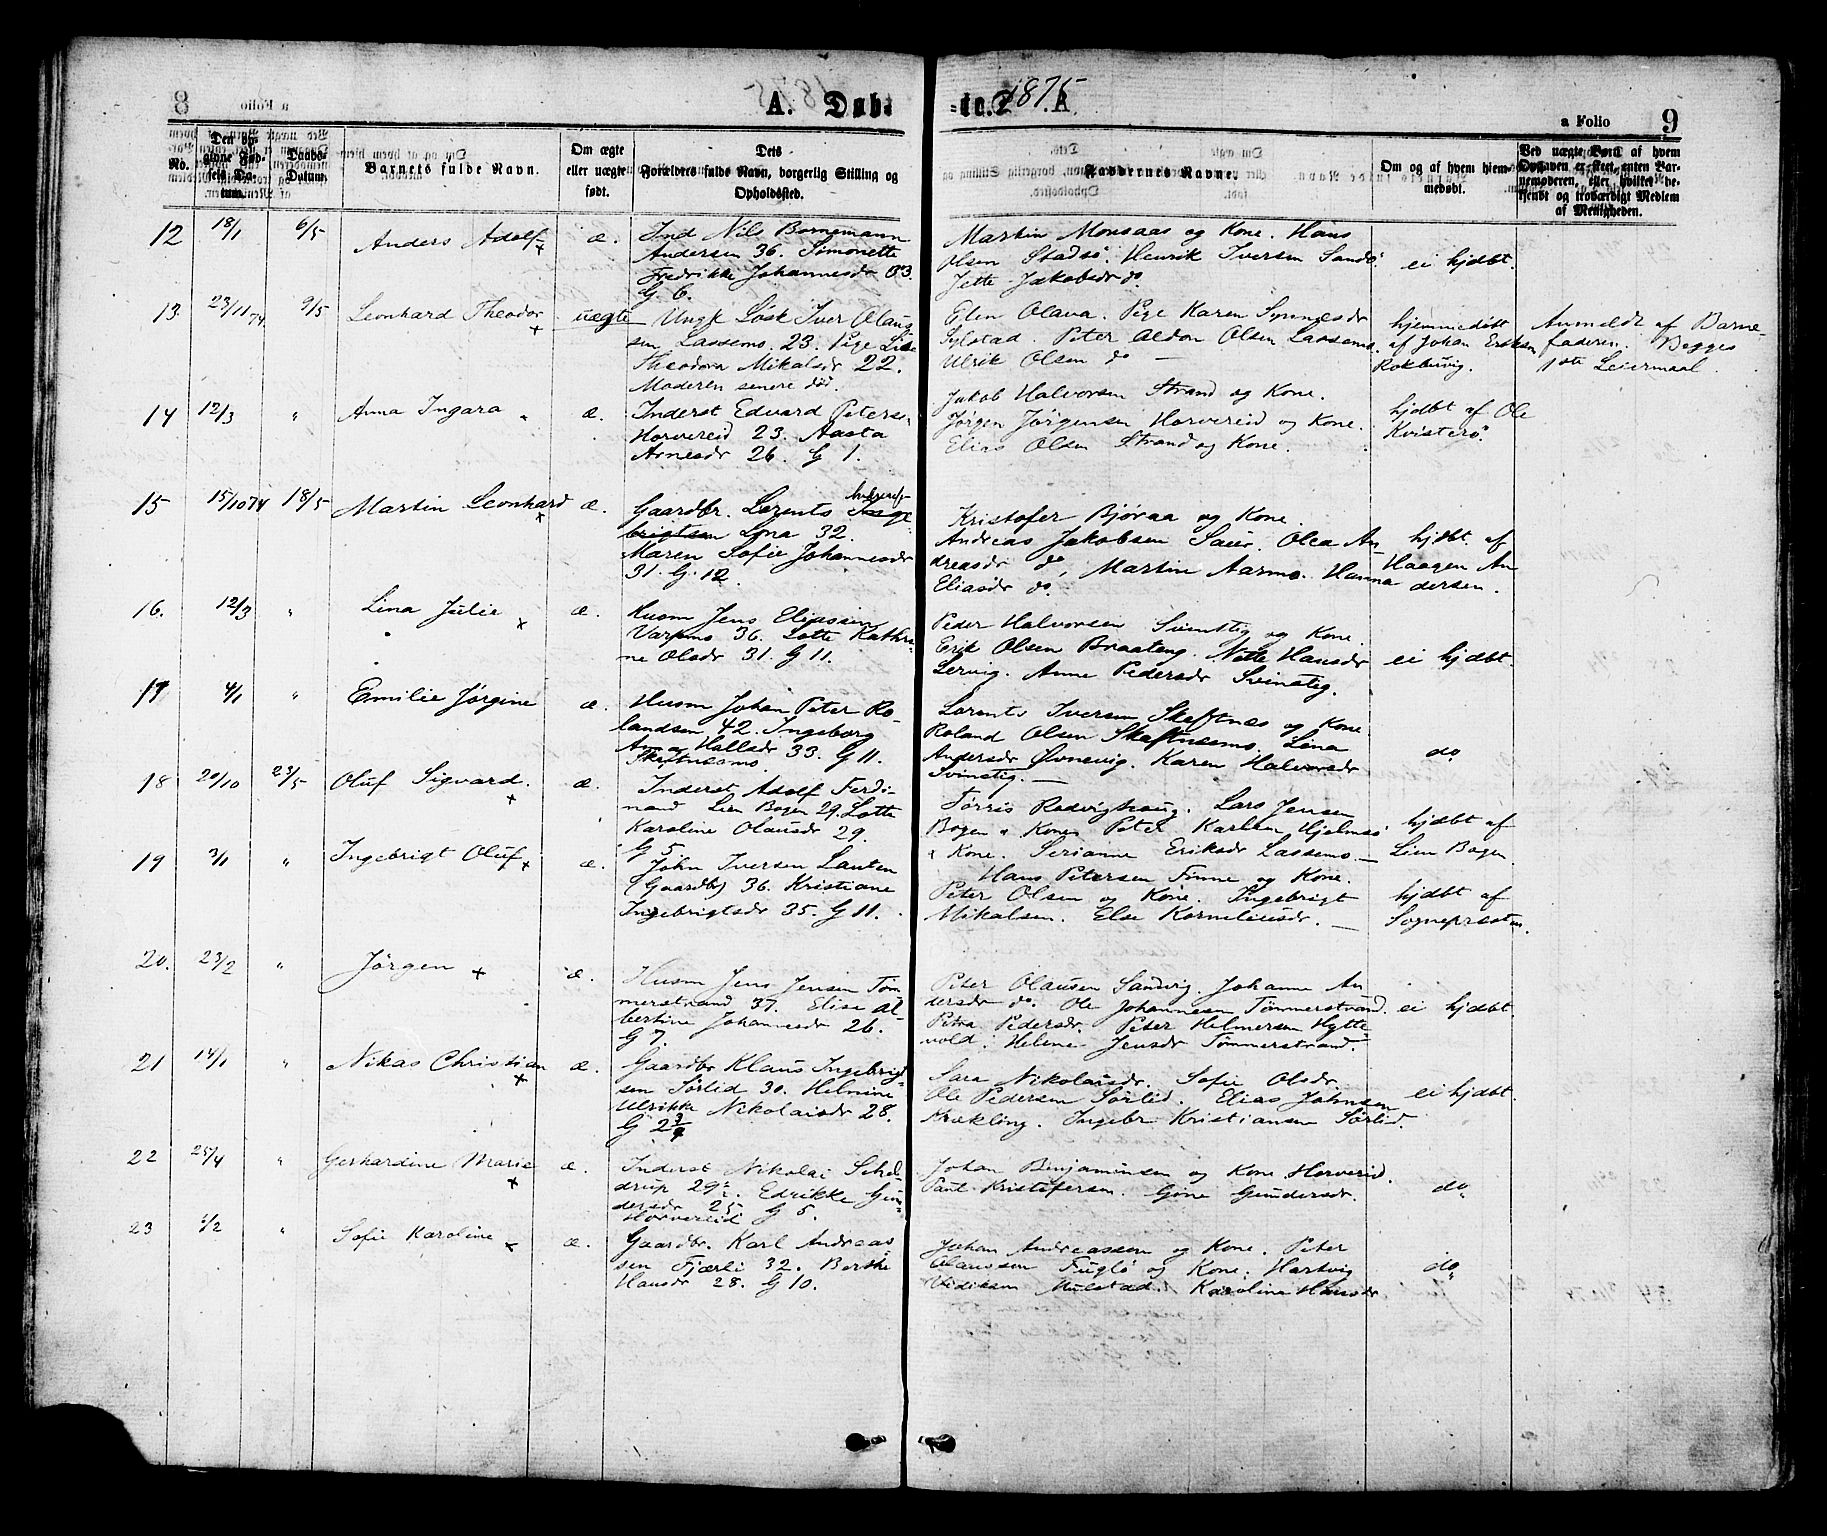 8
a Folio
A. Døb-
-te. 1875 A
a Folio 9
No.
Den opgivne Fødsels Datum.
Daabs-Datum.
Barnets fulde Navn.
Om ægte eller uægte født.
Dets Forældres fulde Navn, borgerlig Stilling og Opholdssted.
Faddernes Navne.
Om og af hvem hjemmedøbt.
Ved uægte Børn af hvem Opgaven er skeet, enten Barnemoderen, eller hvilket bekjendt og troværdigt Medlem af Menigheden.
12 18/1 6/5 Anders Adolf æ.
Ind Nils Bornemann
Andersen 36. Simonette
Fredrikke Johannesdr 33.
G. 6.
Martin Monsaas og Kone. Hans
Olsen Stadsö. Henrik Iversen Sandö.
Jette Jakobsdr do
ei hjdbt.
13 23/11 74. 9/5 Leonhard Theodor uægte
Ungk Løsk Iver Olaug-
sen Lassemo. 23. Pige Lise
Theodora Mikalsdr 22.
Moderen senere död.
Elen Olava. Pige Karen Synnesdr
Sylstad. Peter Aldon Olsen Lassemo.
Ulrik Olsen do —
hjemmedöbt
af Johan Eriksen
Rokbervig.
Anmeldt af Barne-
faderen. Begges
1ste Leiermaal.
14 12/3 " Anna Ingara æ.
Inderst Edvard Peters.
Horvereid 23. Aasta
Arnesdr 26. G 1.
Jakob Halvorsen Strand og Kone.
Jørgen Jörgensen Horvereid og Kone.
Elias Olsen Strand og Kone.
hjdbt af Ole
Kvisterö.
15 15/10 74 18/5 Martin Leonhard æ.
Gaardbr. Lorents Inge
brigtsen Lona 32.
Maren Sofie Johannesdr
31. G. 12.
Kristofer Björaa og Kone.
Andreas Jakobsen Saur. Olea An-
dreasdr do, Martin Aarmo. Hanna
Eliasdr do.
hjdbt. af
Haagen An
dersen.
16. 12/3 " Lina Julie æ.
Husm Jens Eliassen
Varpmo 36. Lotte Kathri-
ne Olsdr 31. G 11.
Peder Halvorsen Svinstig og Kone.
Erik Olsen Braateng. Nette Hansdr
Lervig. Anne Pedersdr Svinstig.
ei hjdbt.
17 4/1 " Emilie Jørgine æ.
Husm Johan Peter Ro-
landsen 42. Ingeborg
Anna Hallsdr 33. G 11.
Skeftnesmo.
Lorents Iversen Skeftnes og Kone
Roland Olsen Skeftnesmo. Lina
Andersdr Øvnevig. Karen Halvorsdr
Svinstig. —
do
18 20/10 23/5 Oluf Sigvard. æ.
Inderst Adolf Ferdi-
nand Lien Bogen 29. Lotte
Karoline Olausdr 29.
G 5.
Torris Rodvigshaug. Lars Jensen
Bogen & Kone Peter Karlsen Hjelmsö
& Kone. Serianne Eriksdr Lassemo. —
hjdbt af
Lien Bogen.
19 3/1 " Ingebrigt Oluf æ.
John Iversen Lauten
(Gaardb) 36. Kristiane
Ingebrigtsdr 35. G 11.
Hans Petersen Finne og Kone.
Peter Olsen og Kone. Ingebrigt
Mikalsen. Else Korneliusdr. —
hjdbt af
Sognepræsten.
20. 23/2 " Jörgen æ.
Husm Jens Jensen Töm
merstrand 37. Elise Al-
bertine Johannesdr 26.
G 7.
Peter Olausen Sandvig. Johanne An
dersdr do. Ole Johannesen Tömmerstrand.
Petra Pedersdr. Peter Helmersen Hytte-
vold. Helene Jensdr Tömmerstrand.
ei hjdbt.
21 14/1 " Nikas Christian æ.
Gaardbr Klaus Ingebrigt-
sen Sörlid 30. Helmine
Ulrikke Nikolaisdr 28.
G 2 3/4
Sara Nikolaisdr. Sofie Olsdr
Ole Pedersen Sörlid. Elias Johnsen
Krækling. Ingebr Kristiansen Sörlid.
ei hjdbt.
22 25/4 " Gerhardine Marie æ.
Inderst Nikolai Schel-
drup 29. Edrikke Gun-
dersdr 25 G 5.
Horvereid
Johan Benjaminsen og Kone Horvereid.
Paul Kristofersen. Gone Gundersdr.
do
23 2/2 " Sofie Karoline æ.
Gaardbr. Karl Andreas
sen Fjærli 32. Berthe
Hansdr 28. G 10.
Johan Andreassen og Kone. Peter
Olaussen Fuglö og Kone. Hartvig
Vediksen Mulstad. Karolina Hansdr
do